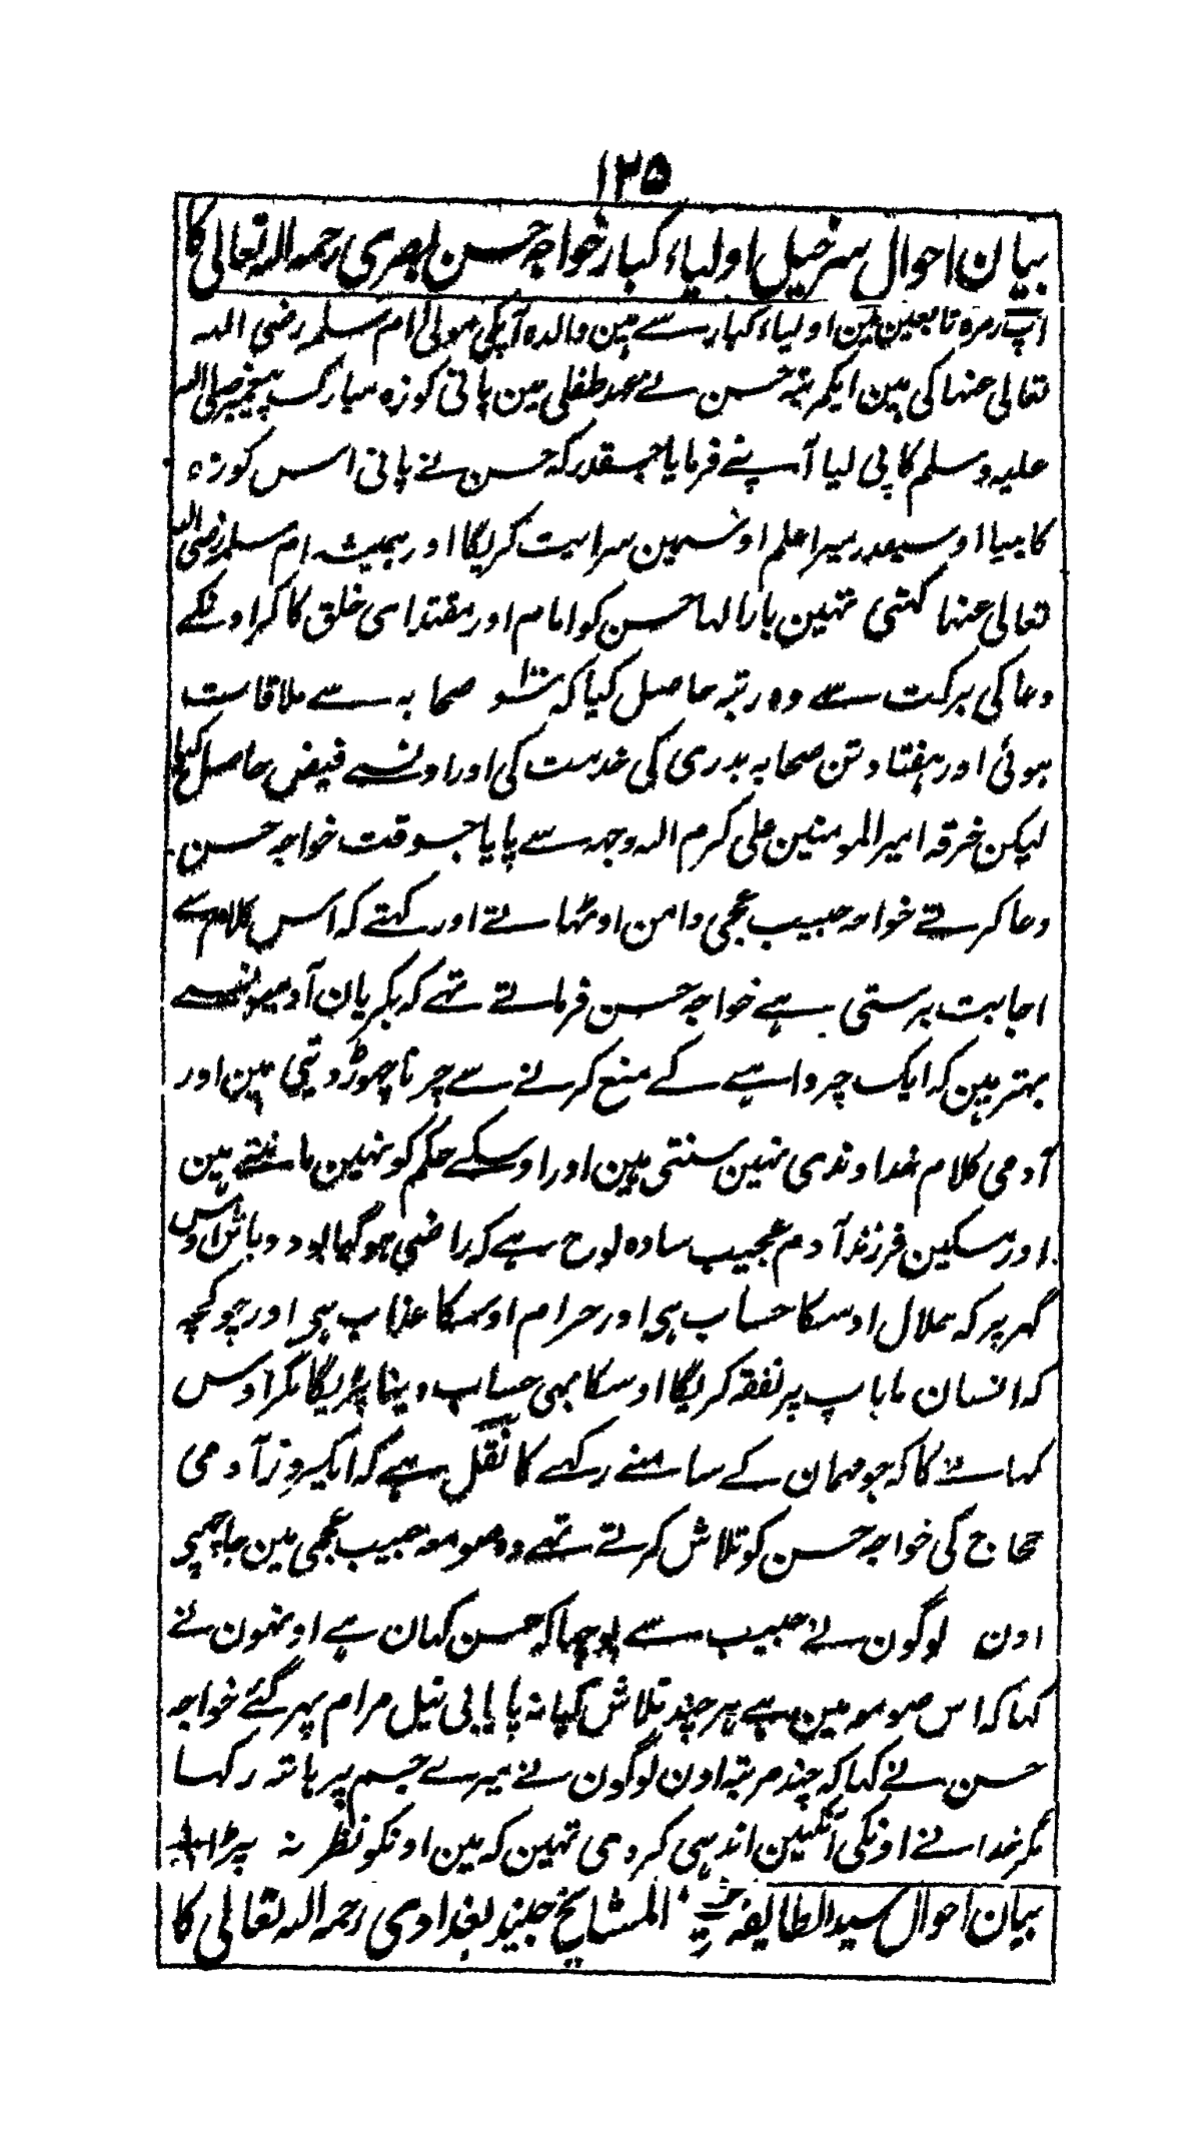 ۱۳۵
بیان احوال سرخیل اولیاء کبار خواجہ حسن بصری رحمہ اللہ تعالی کا
آپ زمرہ تابعین مین اولیاء کبار سے ہین والدہ آپکی موالی ام سلمہ رضی اللہ
تعالی عنہا کی ہین ایکمرتبہ حسن نے عہد طفلی مین پانی کوزہ مبارک پیغمبر صلی اللہ
علیہ وسلم کا پی لیا آپنے فرمایا جسقدر کہ حسن نے پانی اس کوزہ
کا پیا اوسیقدر میرا علم اوسمین سرایت کریگا اور ہمیشہ ام سلمہ رضی اللہ
تعالی عنہا کہتی تہین بارالہا حسن کو امام اور مقتدای خلق کا کر اونکے
دعا کی برکت سے وہ رتبہ حاصل کیا کہ سو صحابہ سے ملاقات
ہوئی اور ہفتاد تن صحابہ بدری کی خدمت کی اور اونسے فیض حاصل کیا
لیکن خرقہ امیر المومنین علی کرم اللہ وجہہ سے پایا جسوقت خواجہ حسن
دعا کرتے خواجہ حبیب عجمی دامن اوٹہاتے اور کہتے کہ اس کلام سے
اجابت برستی ہے خواجہ حسن فرماتے تہے کہ بکریان آدمیونسے
بہتر ہین کہ ایک چرواہے کے منع کرنے سے چرنا چہوڑ دیتی ہین اور
آدمی کلام خداوندی نہین سنتی ہین اور اوسکے حکم کو نہین مانتے ہین
اور مسکین فرزند آدم عجیب سادہ لوح ہے کہ راضی ہو گیا بود و باش اوس
گہر پر کہ حلال اوسکا حساب ہی اور حرام اوسکا عذاب ہی اور جو کچہ
کہ انسان ماباپ پر نفقہ کریگا اوسکا بہی حساب دینا پڑیگا مگر اوس
کہانے کا کہ جو مہمان کے سامنے رکہے کا نقل ہے کہ ایکروز آدمی
حجاج کی خواجہ حسن کو تلاش کرتے تہے وہ صومعہ حبیب عجمی مین جا چہپی
اون لوگون نے حبیب سے پوچہا کہ حسن کہان ہے اونہون نے
کہا کہ اس صومعہ مین ہے ہرچند تلاش کیا نہ پایا بی نیل مرام پہر گئے خواجہ
حسن نے کہا کہ چند مرتبہ اون لوگون نے میرے جسم پر ہاتہ رکہا
مگر خدا نے اونکی آنکہین اندہی کر دی تہین کہ مین اونکو نظر نہ پڑا
بیان احوال سید الطائفہ المشائخ جنید بغدادی رحمہ اللہ تعالی کا